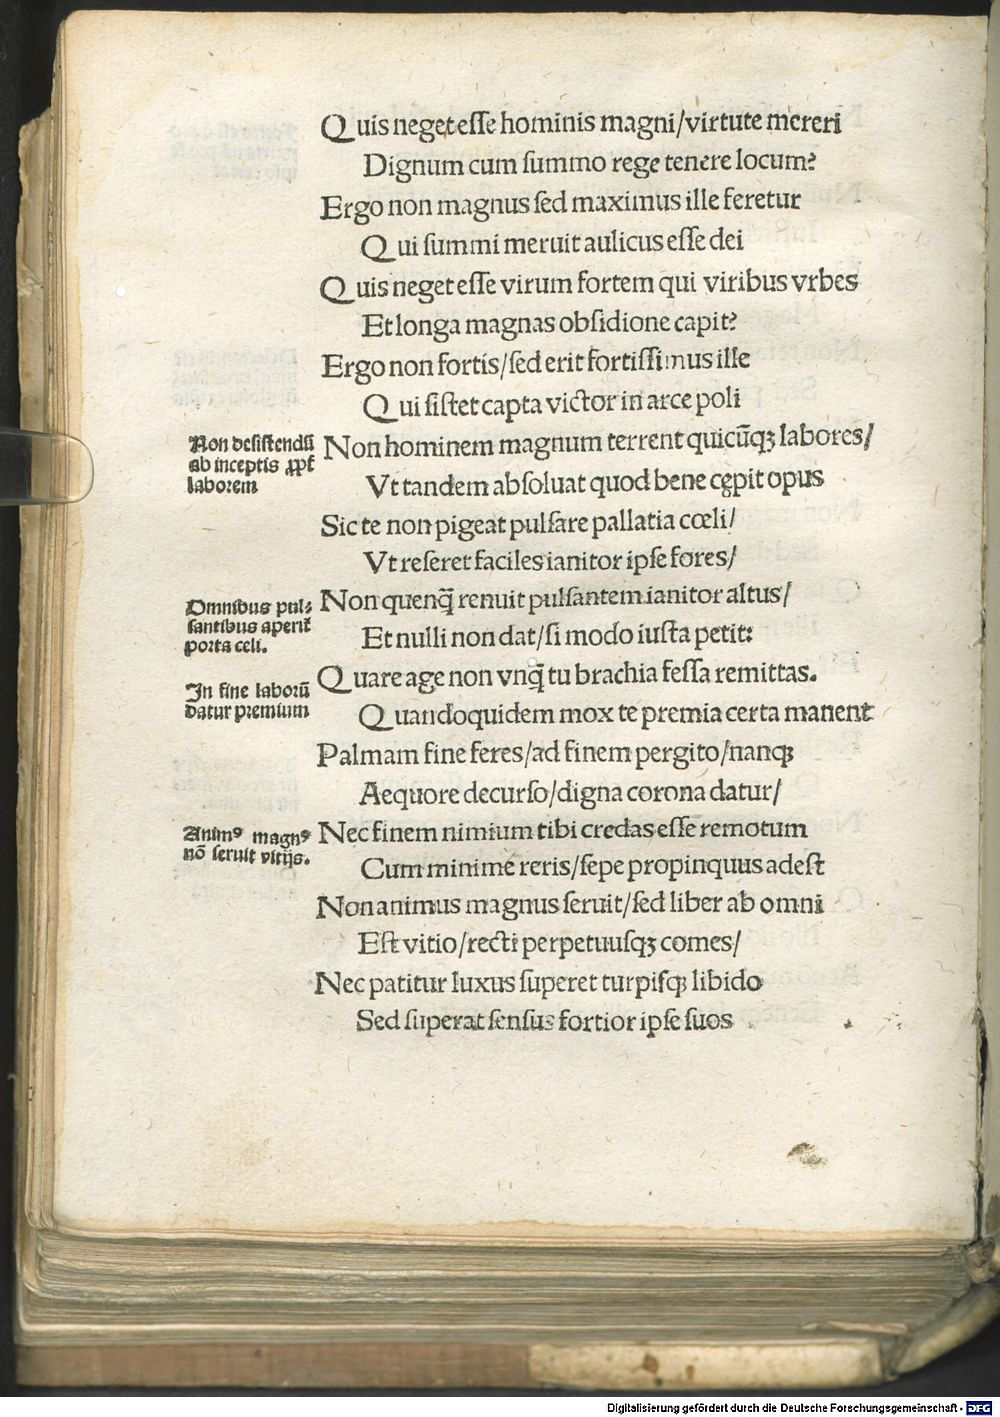 Quis neget esse hominis magni/virtute mereri
Dignum cum summo rege tenere locum?
Ergo non magnus sed maximus ille feretur
Qui summi meruit aulicus esse dei
Quis neget esse virum fortem qui viribus vrbes
Et longa magnas obsidione capit?
Ergo non fortis/sed erit fortissimus ille
Qui sistet capta victor in arce poli
Non desistendū
ab inceptis ꝓpt̄
laborem
Non hominem magnum terrent quicūqꝫ labores/
Vt tandem absoluat quod bene cępit opus
Sic te non pigeat pulsare pallatia cœli/
Vt reseret faciles ianitor ipse fores/
Omnibus pul⸗
santibus aperit̄
porta celi.
Non quenq̄ renuit pulsantem ianitor altus/
Et nulli non dat/si modo iusta petit:
In fine laborū
datur premium
Quare age non vnq̄ tu brachia fessa remittas.
Quandoquidem mox te premia certa manent
Palmam fine feres/ad finem pergito/nanqꝫ
Aequore decurso/digna corona datur/
Animꝰ magnꝰ
nō seruit vitijs.
Nec finem nimium tibi credas esse remotum
Cum minime reris/sepe propinquus adest
Non animus magnus seruit/sed liber ab omni
Est vitio/recti perpetuusqꝫ comes/
Nec patitur luxus superet turpisqꝫ libido
Sed superat sensus fortior ipse suos
Digitalisierung gefördert durch die Deutsche Forschungsgemeinschaft - DFG